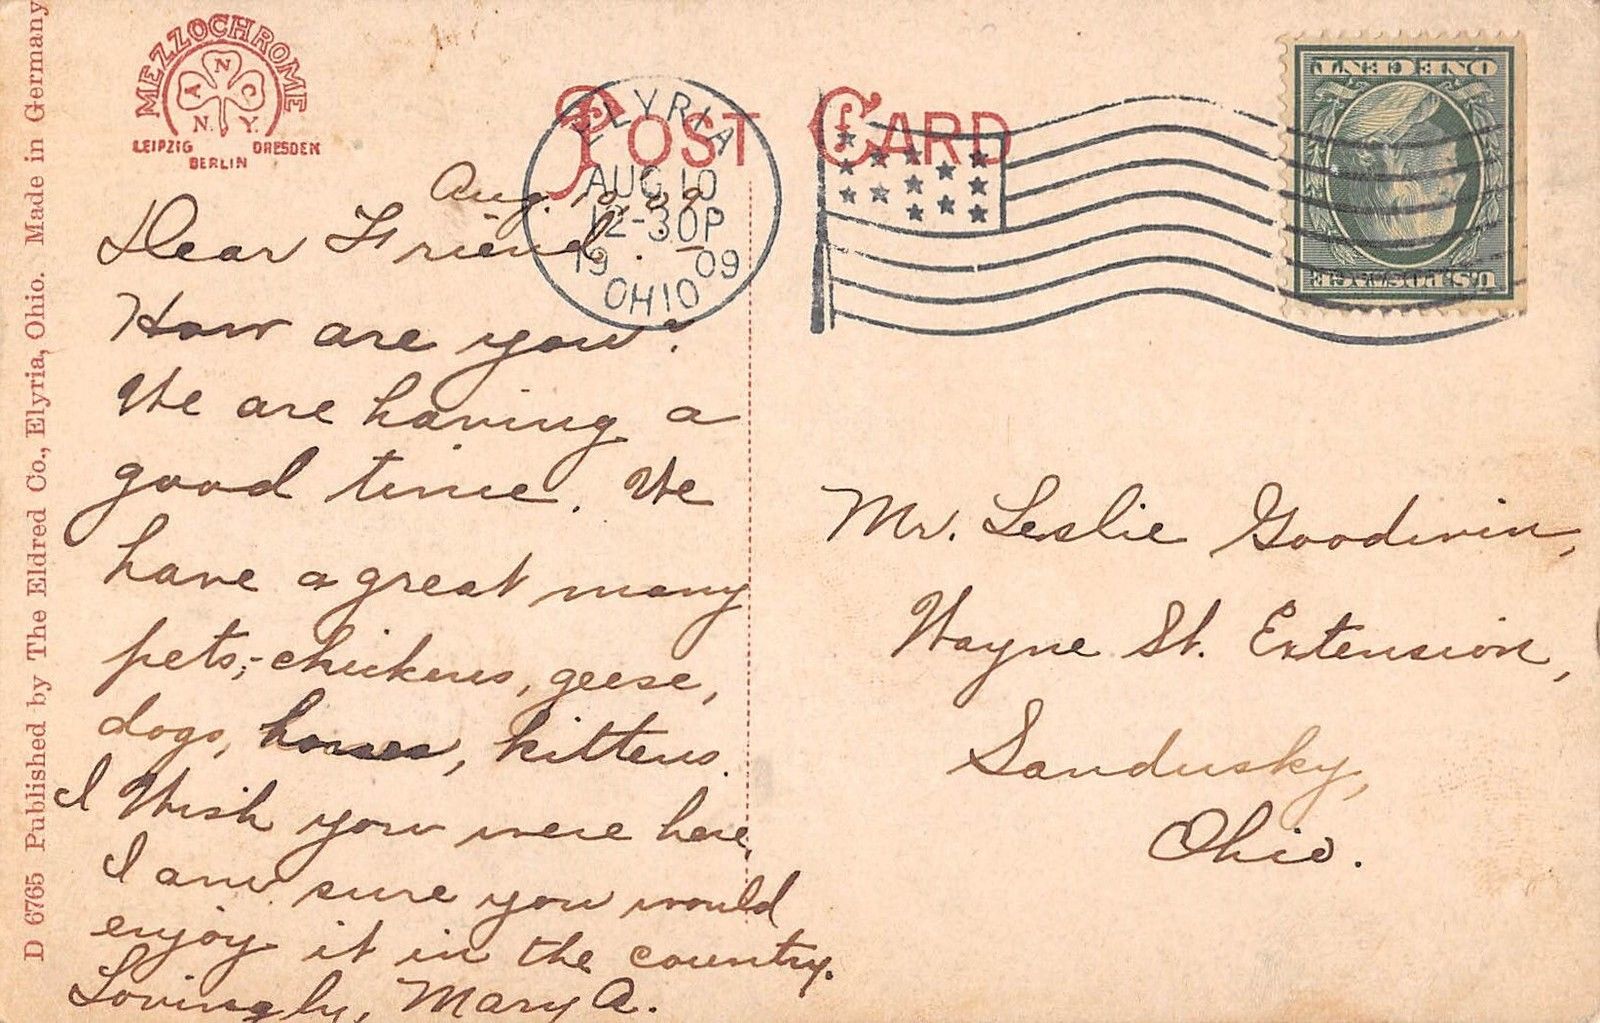 MEZZOCHROME
A N C
N. Y.
LEIPZIG DRESDEN
BERLIN
POST CARD
ELYRIA
AUG 10
12-30P
1909
OHIO
ONE CENT
U.S. POSTAGE
D 6765 Published by The Eldred Co., Elyria, Ohio. Made in Germany
Aug. 10, '09.
Dear Friend.
How are you?
We are having a
good time. We
have a great many
pets,- chickens, geese,
dogs, horses, kittens.
I Wish you were here,
I am sure you would
enjoy it in the country.
Lovingly, Mary A.
Mr. Leslie Goodwin,
Wayne St. Extension,
Sandusky,
Ohio.